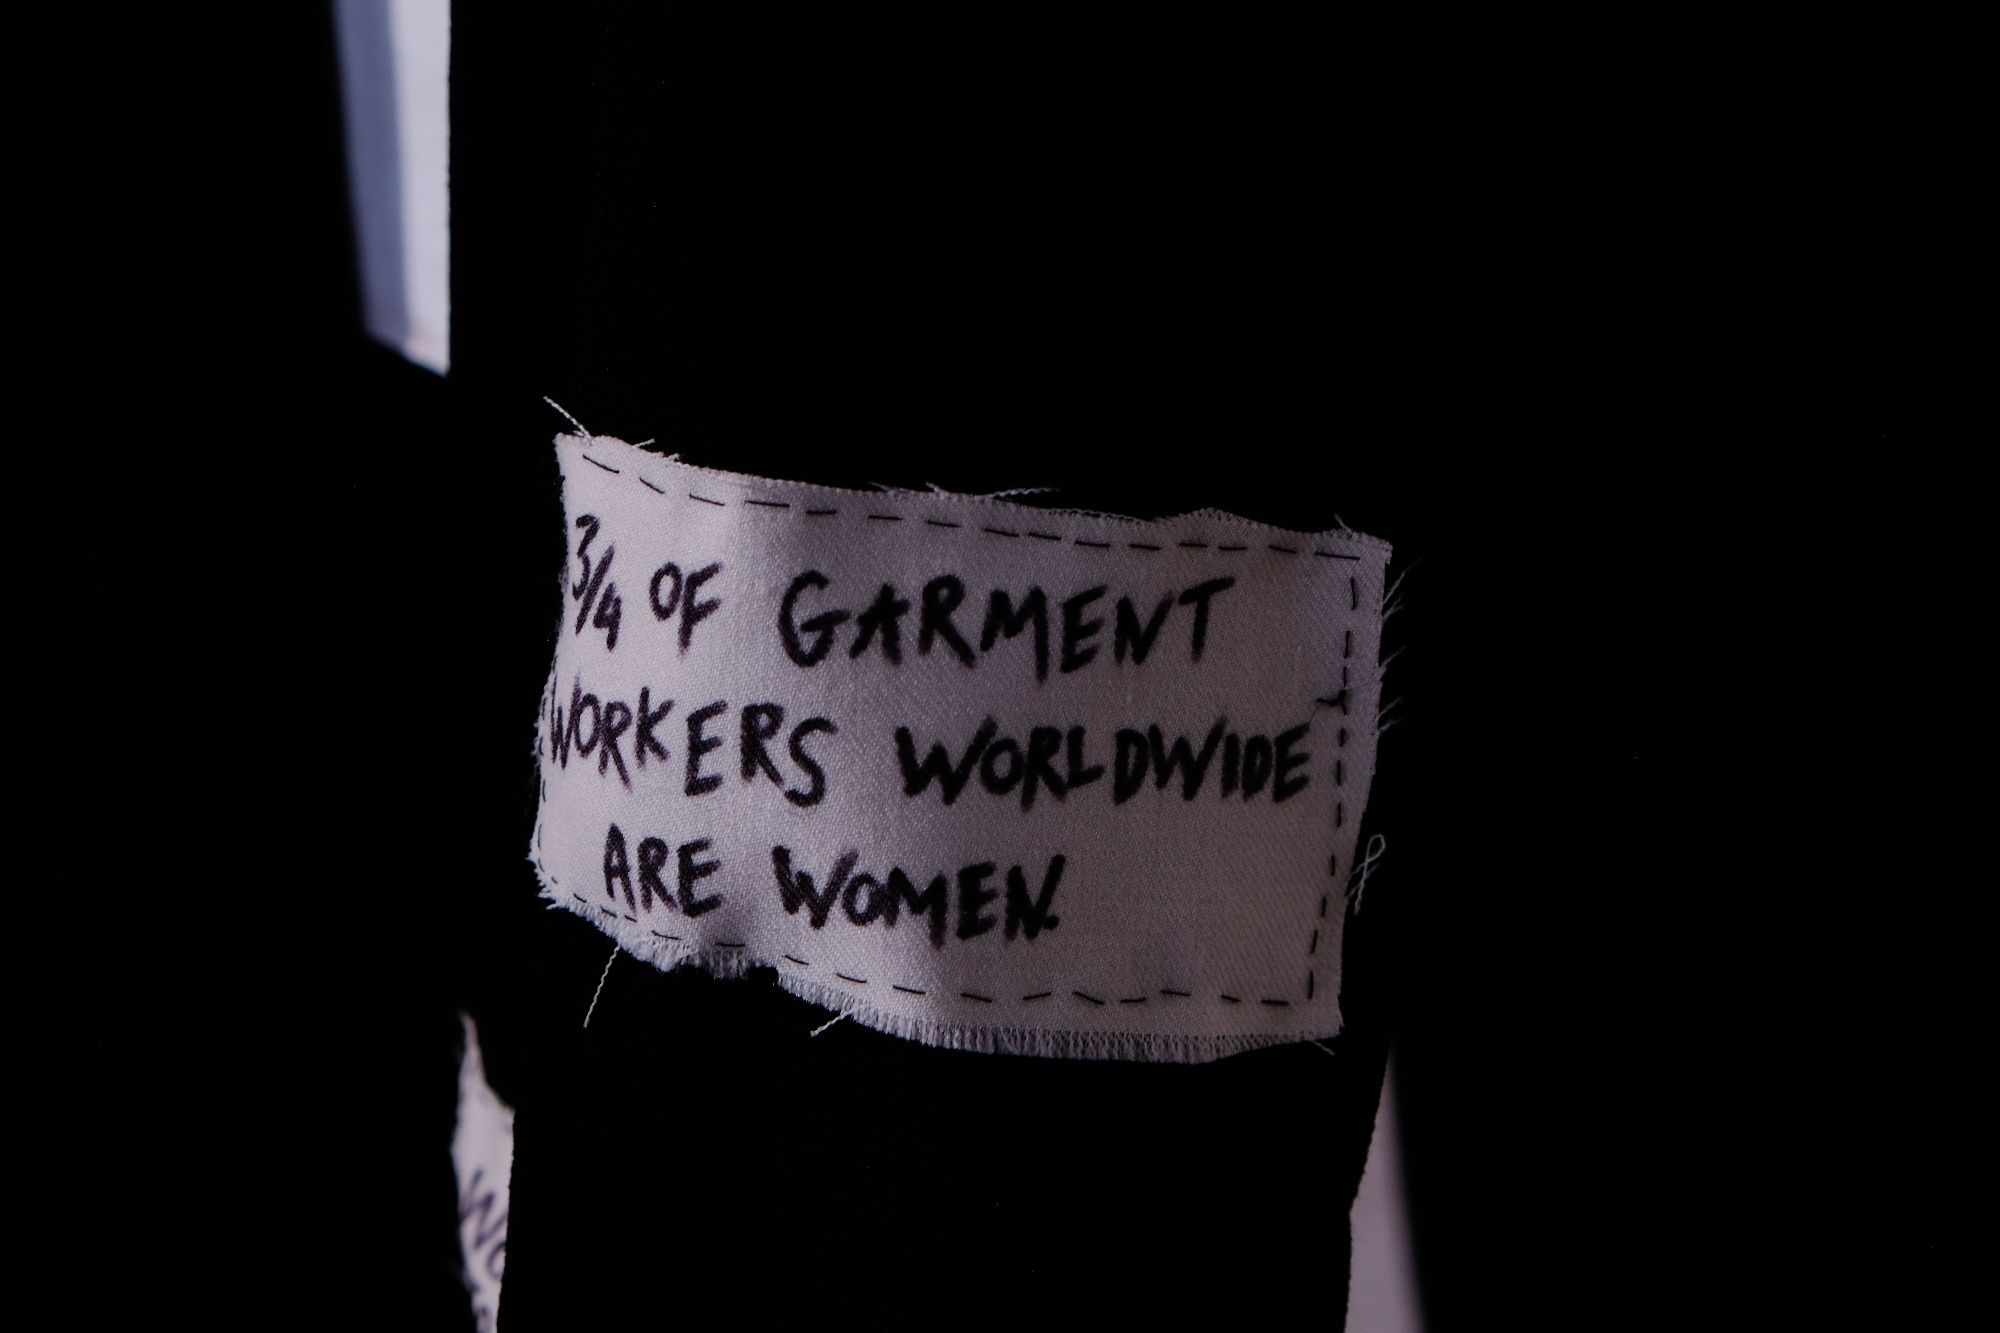 3/4 OF GARMENT
WORKERS WORLDWIDE
ARE WOMEN.